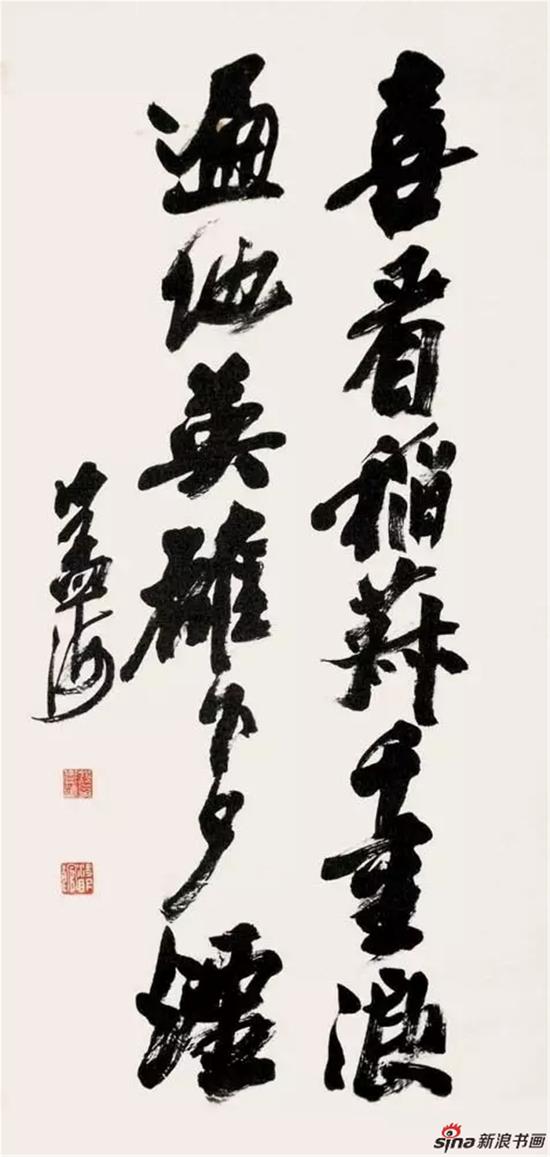 喜看稻菽千重浪
遍地英雄下夕煙
孟海
sina 新浪书画